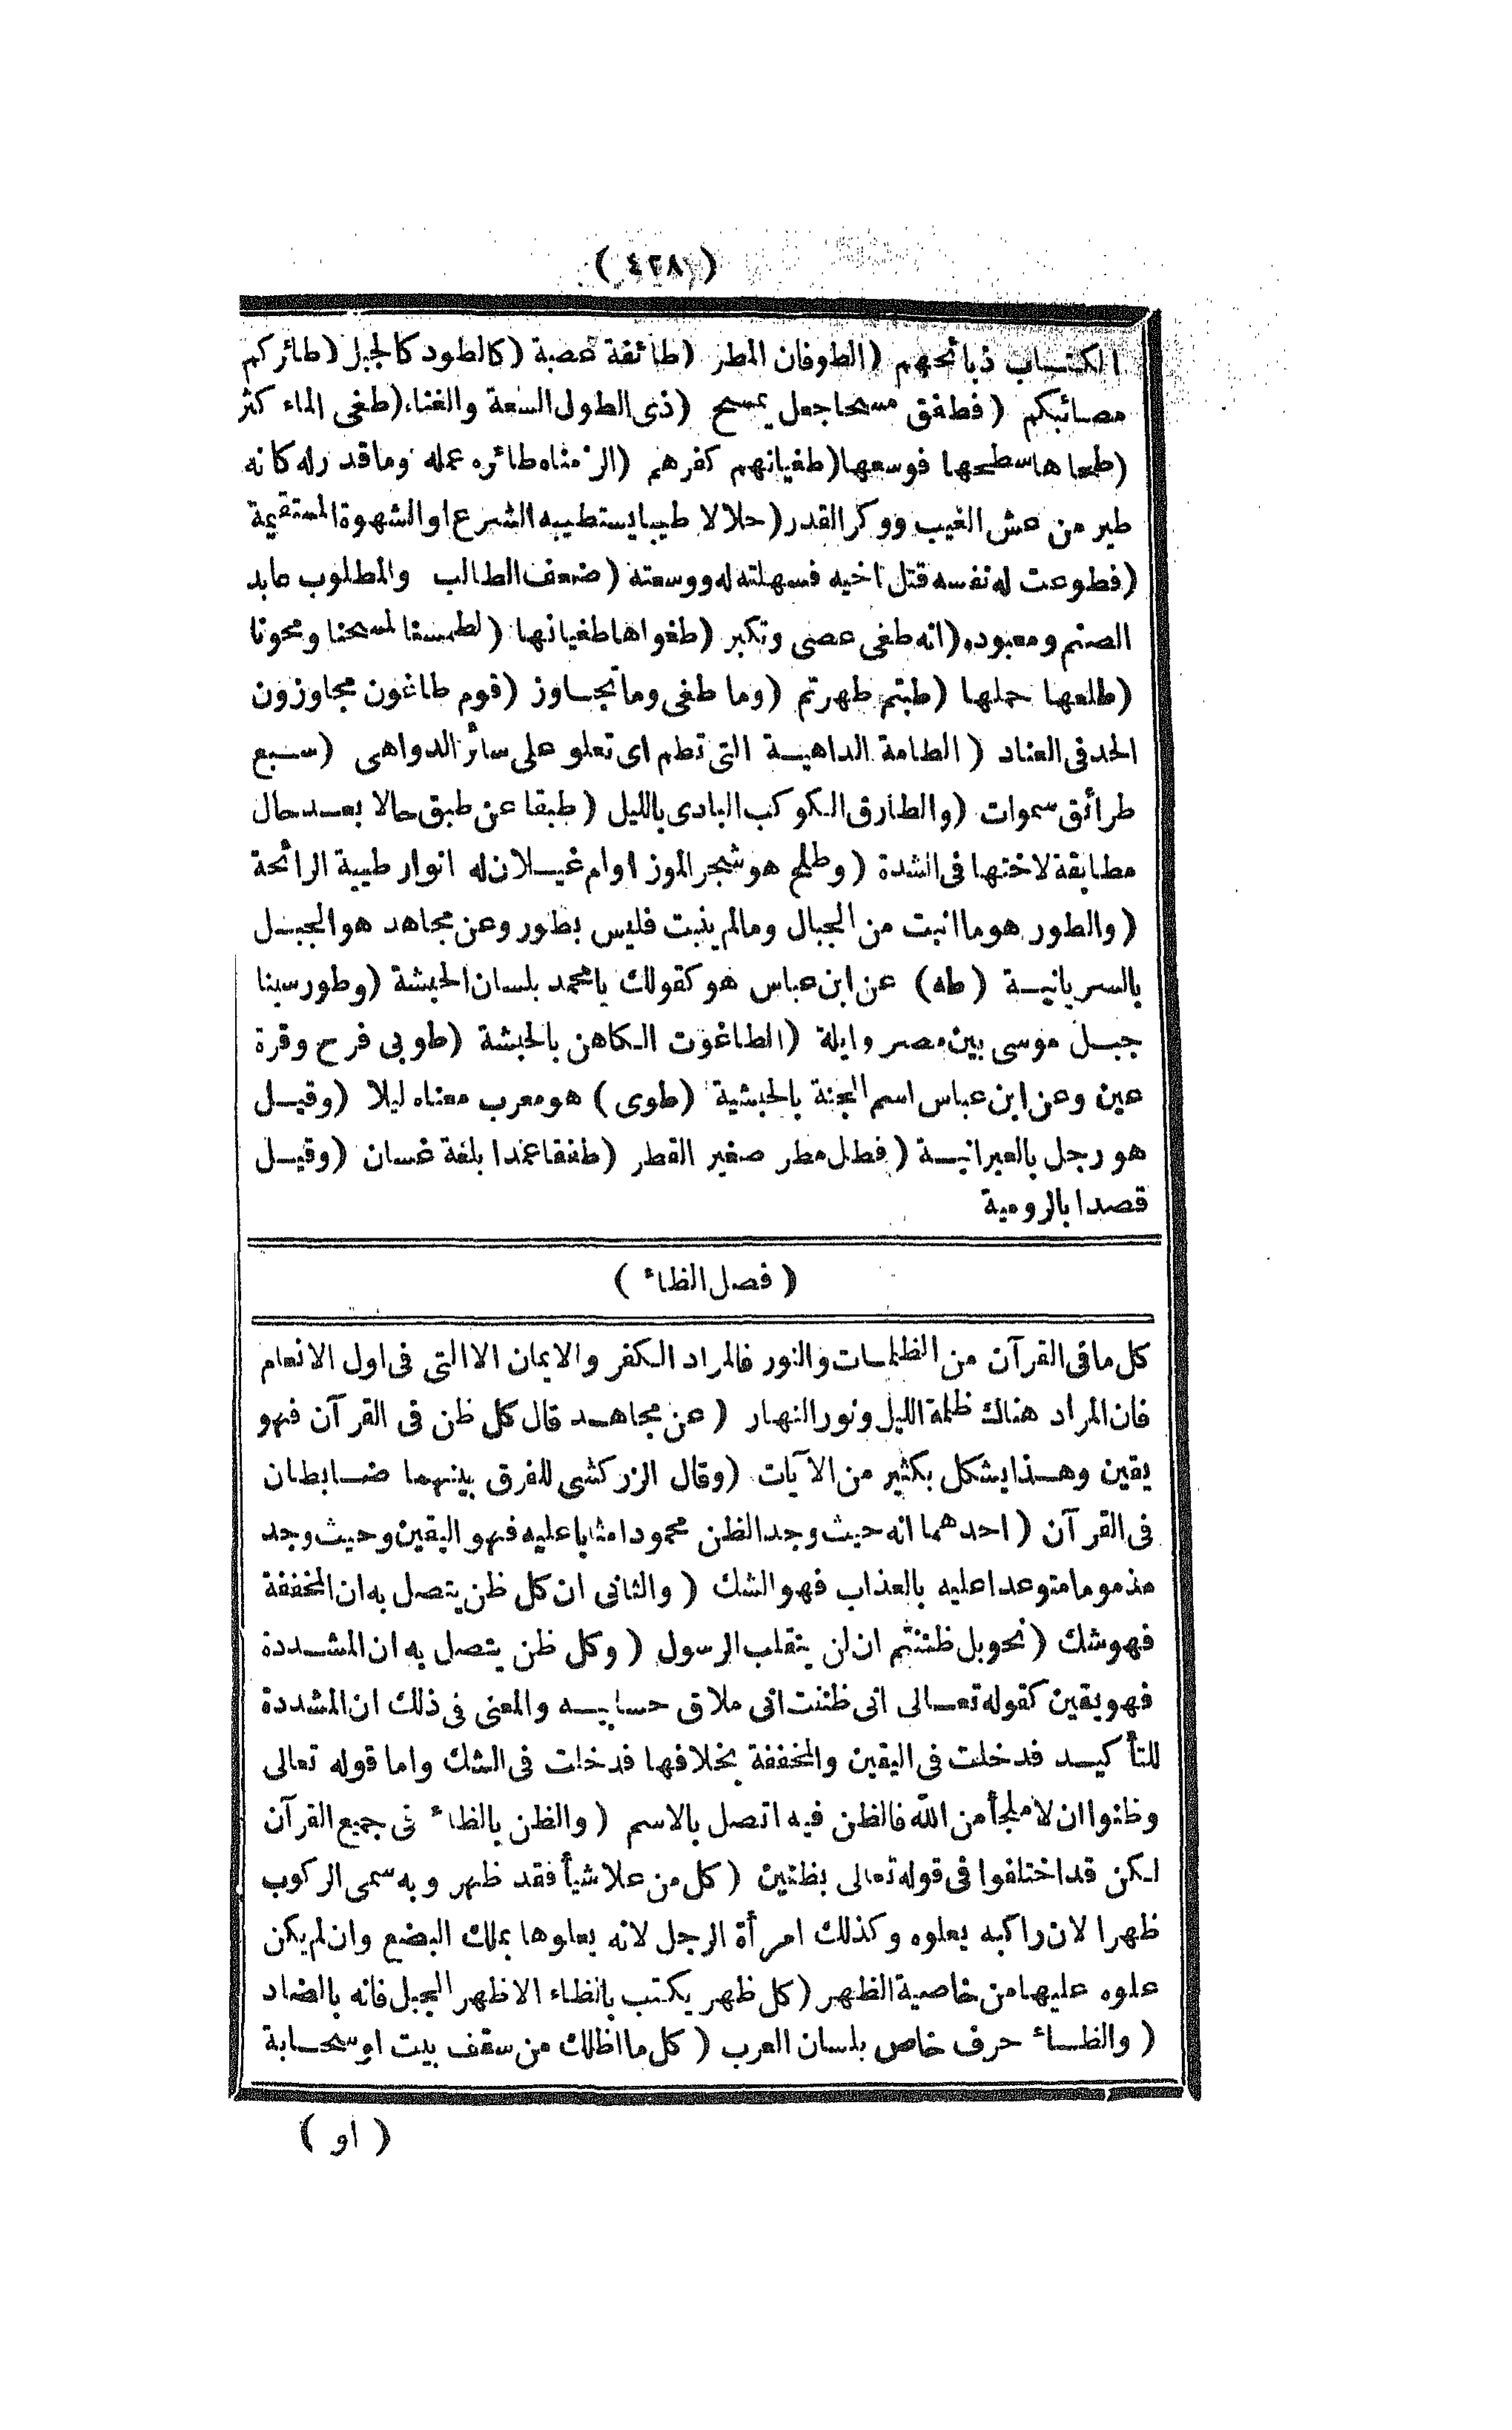 ( ٤٢٨ )
الكتاب ذبائحهم ( الطوفان المطر ( طائفة عصبة ( كالطود كالجبل ( طائركم
مصائبكم ( فطفق مسحا جعل يمسح ( ذى الطول السعة والغناء ( طغى الماء كثر
( طحاها سطحها فوسعها ( طغيانهم كفرهم ( الزمناه طائره عمله وما قدر له كانه
طير من عش الغيب ووكر القدر ( حلالا طيبا يستطيبه الشرع او الشهوة المستقيمة
( فطوعت له نفسه قتل اخيه فسهلته له ووسعته ( ضعف الطالب والمطلوب عابد
الصنم ومعبوده ( انه طغى عصى وتكبر ( طغواها طغيانها ( لطمسنا لمسحنا ومحونا
( طلعها حملها ( طبتم طهرتم ( وما طغى وما تجاوز ( قوم طاغون مجاوزون
الحد فى العناد ( الطامة الداهية التى تطم اى تعلو على سائر الدواهى ( سبع
طرائق سموات ( والطارق الكوكب البادى بالليل ( طبقا عن طبق حالا بعد حال
مطابقة لاختها فى الشدة ( وطلح هو شجر الموز او ام غيلان له انوار طيبة الرائحة
( والطور هو ما انبت من الجبال وما لم ينبت فليس بطور وعن مجاهد هو الجبل
بالسريانية ( طه ) عن ابن عباس هو كقولك يا محمد بلسان الحبشة ( وطور سينا
جبل موسى بين مصر وايلة ( الطاغوت الكاهن بالحبشة ( طوبى فرح وقرة
عين وعن ابن عباس اسم الجنة بالحبشية ( طوى ) هو معرب معناه ليلا ( وقيل
هو رجل بالعبرانية ( فطل مطر صغير القطر ( طفقا عمدا بلغة غسان ( وقيل
قصدا بالرومية
( فصل الظاء )
كل ما فى القرآن من الظلمات والنور فالمراد الكفر والايمان الا التى فى اول الانعام
فان المراد هناك ظلمة الليل ونور النهار ( عن مجاهد قال كل ظن فى القرآن فهو
يقين وهذا يشكل بكثير من الآيات ( وقال الزركشى للفرق بينهما ضابطان
فى القرآن ( احدهما انه حيث وجد الظن محمودا مثابا عليه فهو اليقين وحيث وجد
مذموما متوعدا عليه بالعذاب فهو الشك ( والثانى ان كل ظن يتصل به ان المخففة
فهو شك ( نحو بل ظننتم ان لن ينقلب الرسول ( وكل ظن يتصل به ان المشددة
فهو يقين كقوله تعالى انى ظننت انى ملاق حسابيه والمعنى فى ذلك ان المشددة
للتأكيد فدخلت فى اليقين والمخففة بخلافها فدخلت فى الشك واما قوله تعالى
وظنوا ان لا ملجأ من الله فالظن فيه اتصل بالاسم ( والظن بالظاء فى جميع القرآن
لكن قد اختلفوا فى قوله تعالى بظنين ( كل من علا شيأ فقد ظهر وبه سمى الركوب
ظهرا لان راكبه يعلوه وكذلك امرأة الرجل لانه يعلوها بملك البضع وان لم يكن
علوه عليها من خاصية الظهر ( كل ظهر يكتب بالظاء الا ظهر الجبل فانه بالضاد
( والظاء حرف خاص بلسان العرب ( كل ما اظلك من سقف بيت او سحابة
( او )